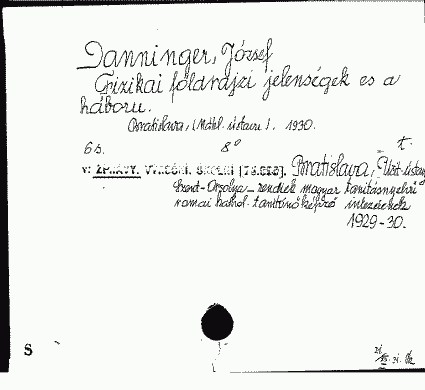 Danninger, József
Fizikai földrajzi jelenségek es a
háboru.
Bratislava, (Mátel. ústavu). 1930.
6 s. 8° t.
v: ZPRÁVY. VÝROČNÍ. ŠKOLNÍ Bratislava, Ušt. ústav
Szent-Orsolya-rendiek magyar tanitásnyelvü
romai kathol. tanitónőképző intézének
1929-30.
S